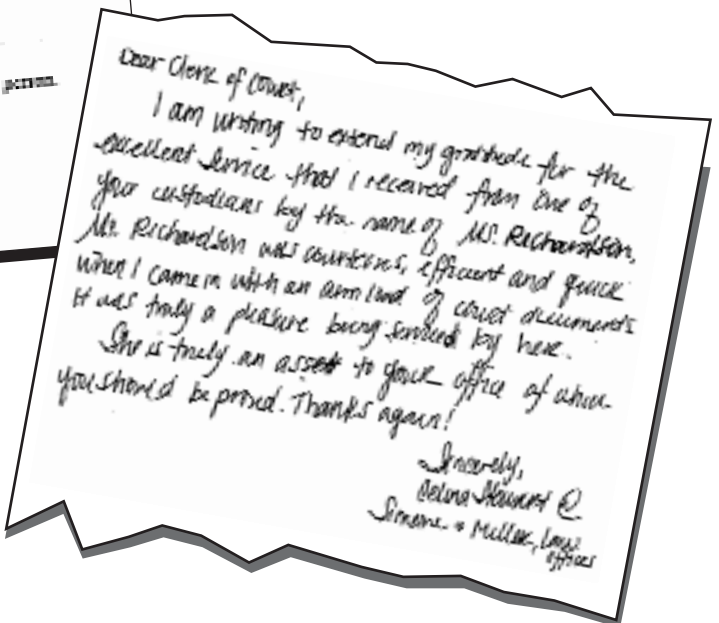 Dear Clerk of Court,
I am writing to extend my gratitude for the
excellent service that I received from one of
your custodians by the name of Ms. Richardson.
Ms. Richardson was courteous, efficient and quick
when I came in with an arm load of court documents
It was truly a pleasure being serviced by her.
She is truly an asset to your office of which
you should be proud. Thanks again!
Sincerely,
Celina Stewart @
Simone & Miller, Law
offices